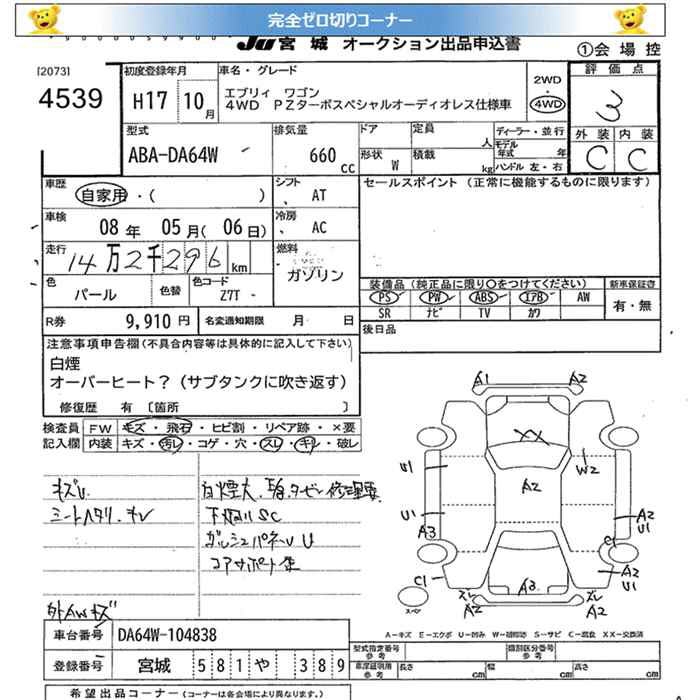 完全ゼロ切りコーナー
JU宮城 オークション出品申込書
①会場控
[2073]
4539
初度登録年月
H17 10月
車名・グレード
エブリィ ワゴン
4WD PZターボスペシャルオーディオレス仕様車
2WD
・
4WD
評価点
3
外装 内装
C C
型式
ABA-DA64W
排気量
660cc
ドア
定員 人
形状 W
積載 kg
ディーラー・並行
モデル年式 年
ハンドル 左・右
車歴
自家用・( )
シフト
AT
セールスポイント (正常に機能するものに限ります)
車検
08年 05月(06日)
冷房
AC
走行
14万2千296km
燃料
ガソリン
色
パール
色替
色コード
Z7T
装備品(純正品に限り○をつけてください)
PS PW ABS エアB AW
SR ナビ TV カワ
新車保証書
有・無
R券
9,910円
名変通知期限 月 日
後日品
注意事項申告欄(不具合内容等は具体的に記入して下さい)
白煙
オーバーヒート?(サブタンクに吹き返す)
修復歴 有 〔箇所 〕
検査員記入欄
FW キズ・飛石・ヒビ割・リペア跡・×要
内装 キズ・汚レ・コゲ・穴・スレ・キレ・破レ
キズU
シートヘタリ・キレ
白煙大
下廻りSC
コアサポート
外AWキズ
A1 A2
XX
W2
A2
U1
U1
A3
A2
U1
C1
C1
A3
A2
U1
ズレ
A2
ズレ
A2
スペア
A-キズ E-エクボ U-凹み W-補修跡 S-サビ C-腐食 XX-交換済
車台番号
DA64W-104838
登録番号
宮城 581や 389
型式指定番号
参考
類別区分番号
参考
車庫証明用
参考
長さ cm
幅 cm
高さ cm
希望出品コーナー(コーナーは各会場により異なります。)